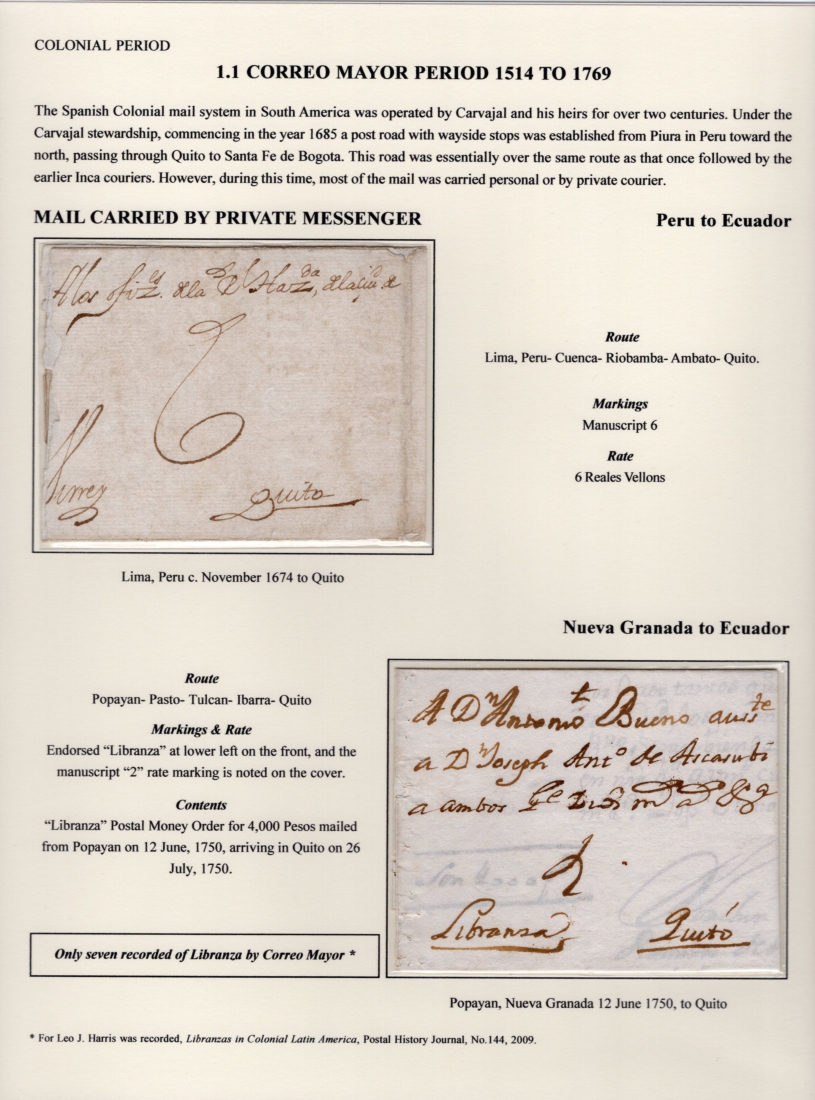 COLONIAL PERIOD
1.1 CORREO MAYOR PERIOD 1514 TO 1769
The Spanish Colonial mail system in South America was operated by Carvajal and his heirs for over two centuries. Under the
Carvajal stewardship, commencing in the year 1685 a post road with wayside stops was established from Piura in Peru toward the
north, passing through Quito to Santa Fe de Bogota. This road was essentially over the same route as that once followed by the
earlier Inca couriers. However, during this time, most of the mail was carried personal or by private courier.
MAIL CARRIED BY PRIVATE MESSENGER
Peru to Ecuador
A los
6
Quito
Route
Lima, Peru- Cuenca- Riobamba- Ambato- Quito.
Markings
Manuscript 6
Rate
6 Reales Vellons
Lima, Peru c. November 1674 to Quito
Nueva Granada to Ecuador
Route
Popayan- Pasto- Tulcan- Ibarra- Quito
Markings & Rate
Endorsed “Libranza” at lower left on the front, and the
manuscript “2” rate marking is noted on the cover.
Contents
“Libranza” Postal Money Order for 4,000 Pesos mailed
from Popayan on 12 June, 1750, arriving in Quito on 26
July, 1750.
Only seven recorded of Libranza by Correo Mayor *
A Dn Antonio Bueno
a Dn Joseph Anto de Ascasubi
a ambos
2
Libranza Quito
Popayan, Nueva Granada 12 June 1750, to Quito
* For Leo J. Harris was recorded, Libranzas in Colonial Latin America, Postal History Journal, No.144, 2009.